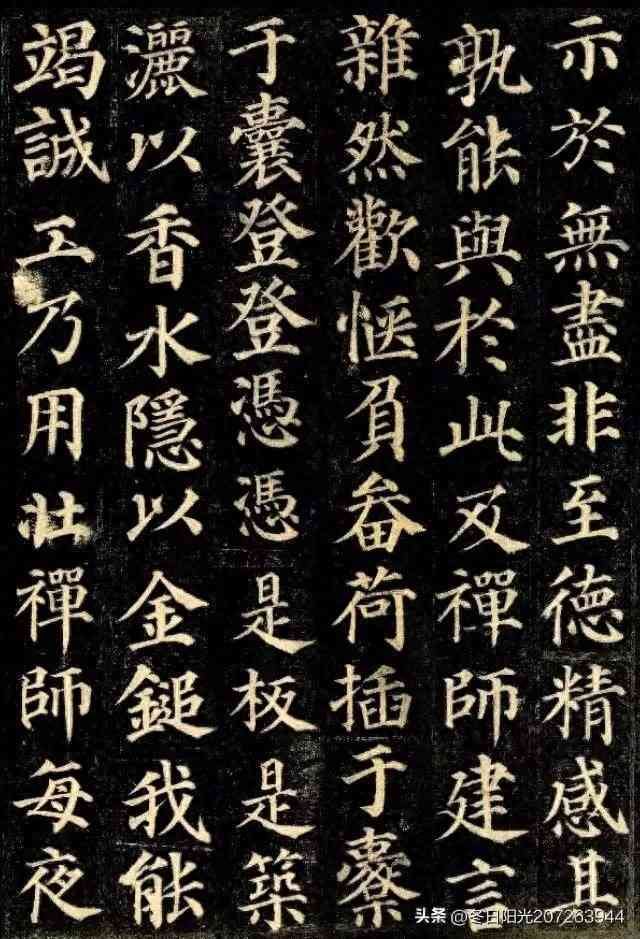 示於無盡非至德精感其
孰能與於此及禪師建言
雜然歡愜負畚荷插于橐
于囊登登憑憑是板是築
灑以香水隱以金鎚我能
竭誠工乃用壯禪師每夜
头条@冬日阳光207263944